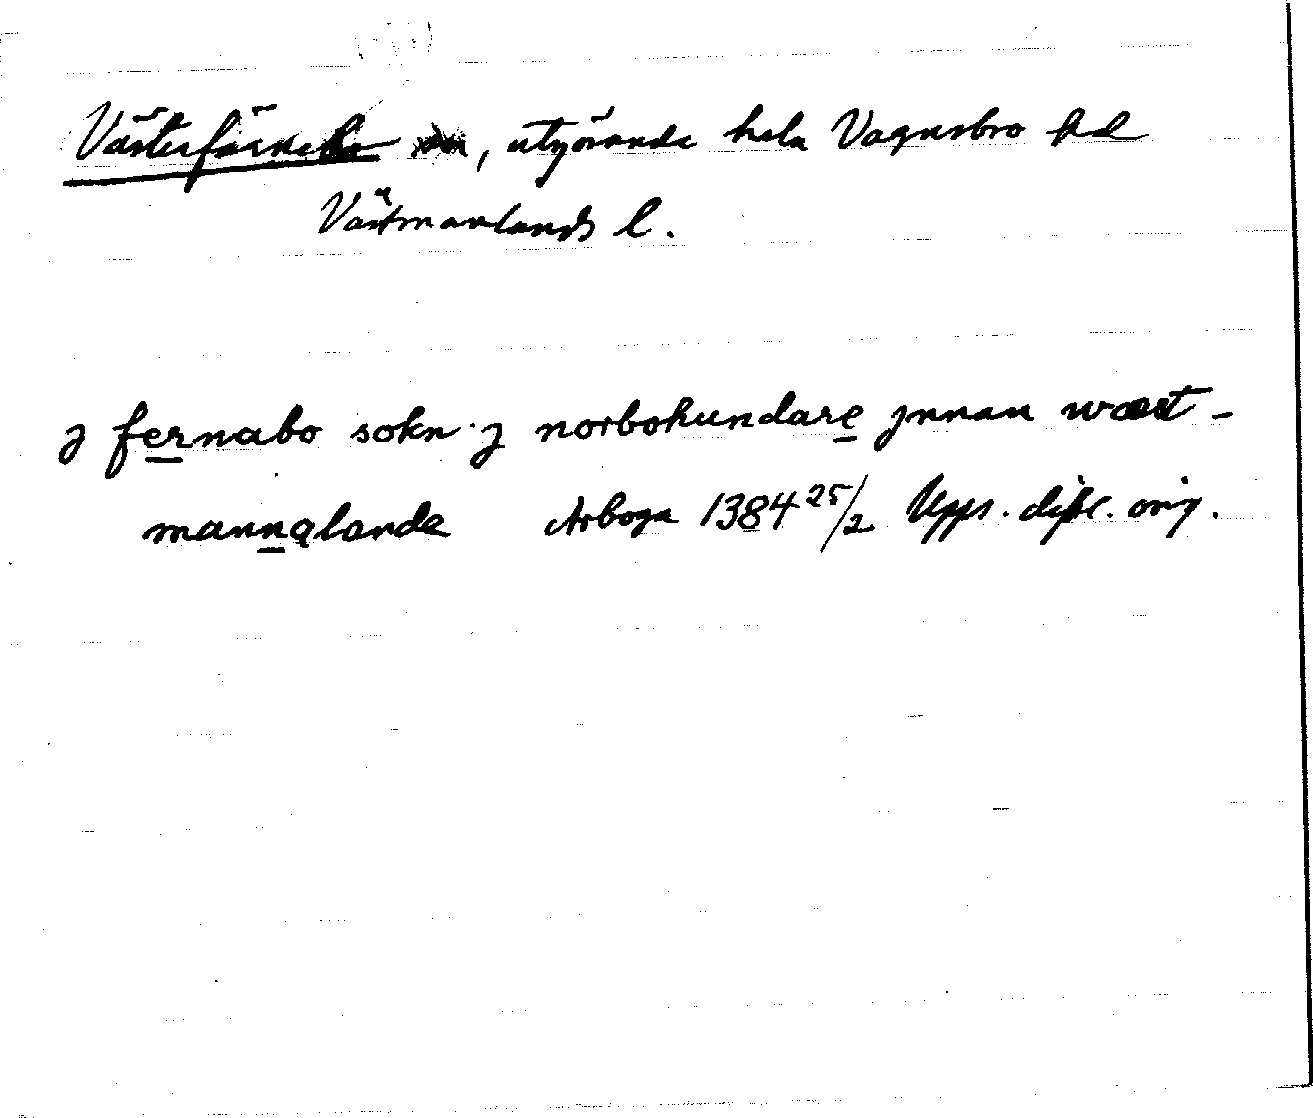 Västerfärnebo sn, utgörande hela Vagnsbro hd
Västmanlands l.
j fernabo sokn j norbohundare jnnan wæst-
mannalande Arboga 1384 25/2 Upps. dipl. orig.